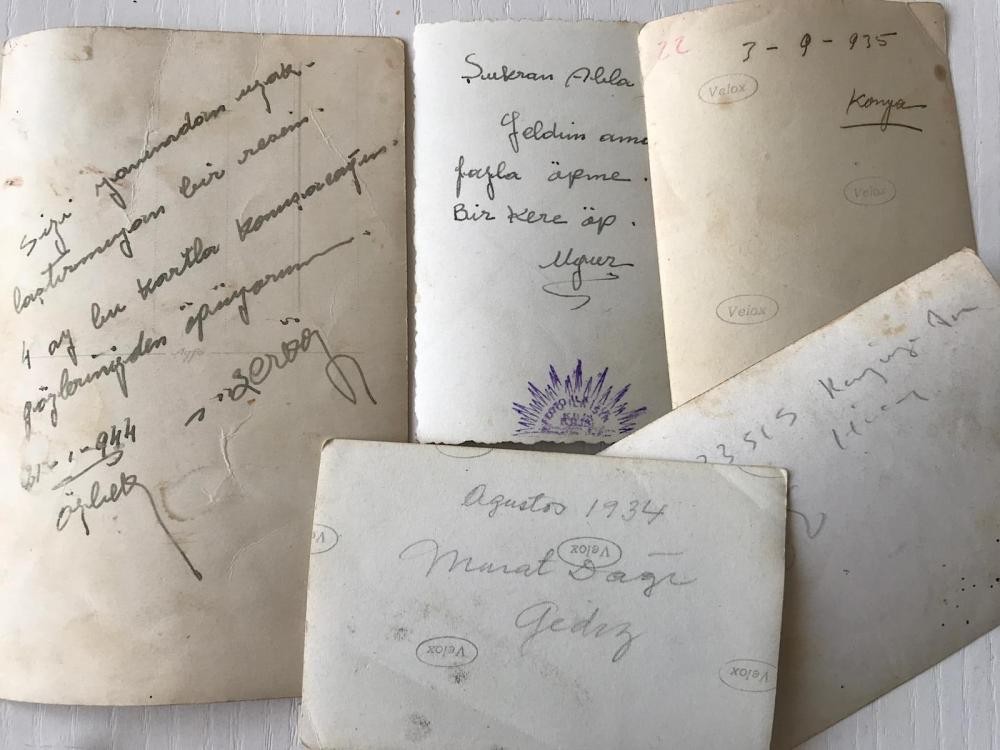 Sizi yanımdan uzak-
laştırmayan bir resim.
4 ay bu kartla konuşacağım.
gözlerinizden öpüyorum.
31-1-944
özbek
Şukran Abla
Geldim ama
fazla öpme.
Bir Kere öp.
Uğur
FOTO
22
3-9-935
Konya
Velox
Velox
Velox
23515
Ağustos 1934
Murat Dağı
Gediz
Velox
Velox
Velox
Velox